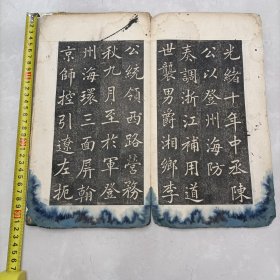 光緒十年中丞陳
公以登州海防
奏調浙江補用道
世襲男爵湘鄉李
公統領西路營務
秋九月至於軍登
州海環三面屏翰
京師控引遼左扼